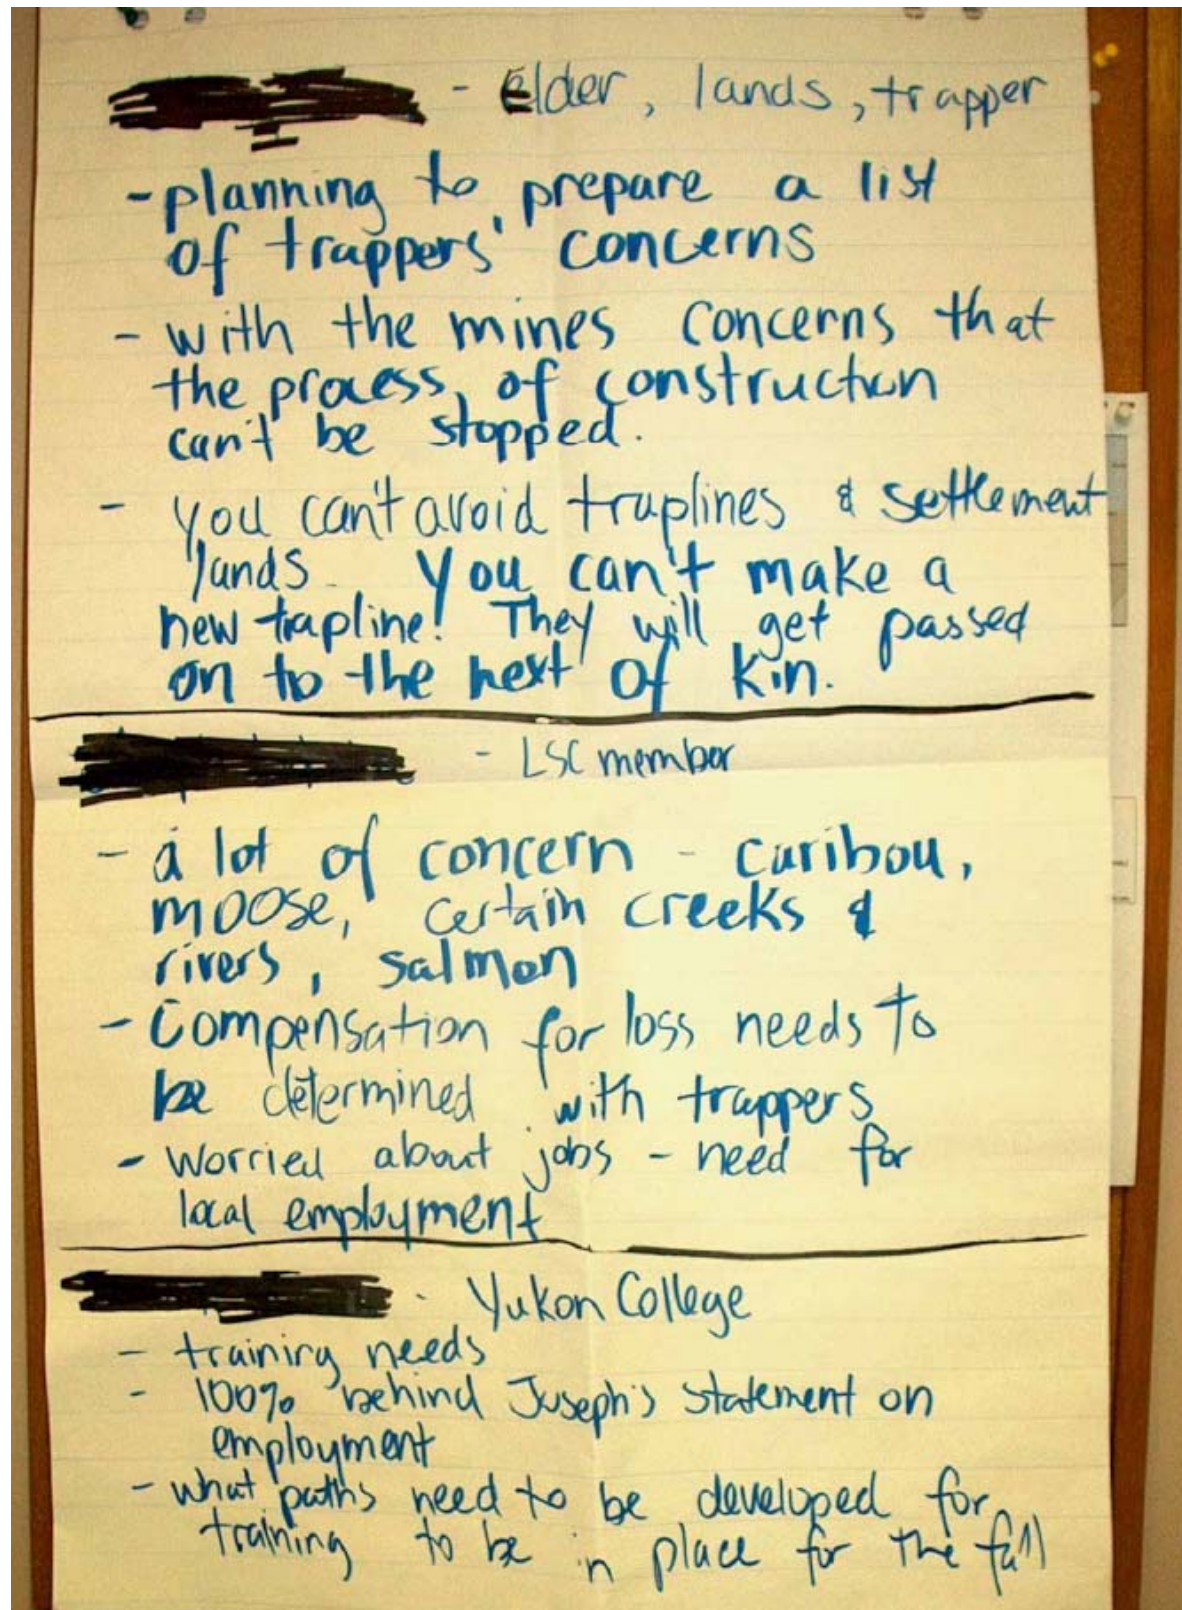 - Elder, lands, trapper
- planning to prepare a list
of trappers' concerns
- with the mines concerns that
the process of construction
can't be stopped.
- you can't avoid traplines & settlement
lands. You can't make a
new trapline! They will get passed
on to the next of kin.
- LSC member
- a lot of concern - caribou,
moose, certain creeks &
rivers, salmon
- Compensation for loss needs to
be determined with trappers
- worried about jobs - need for
local employment
- Yukon College
- training needs
- 100% behind Joseph's statement on
employment
- what paths need to be developed for
training to be in place for the fall